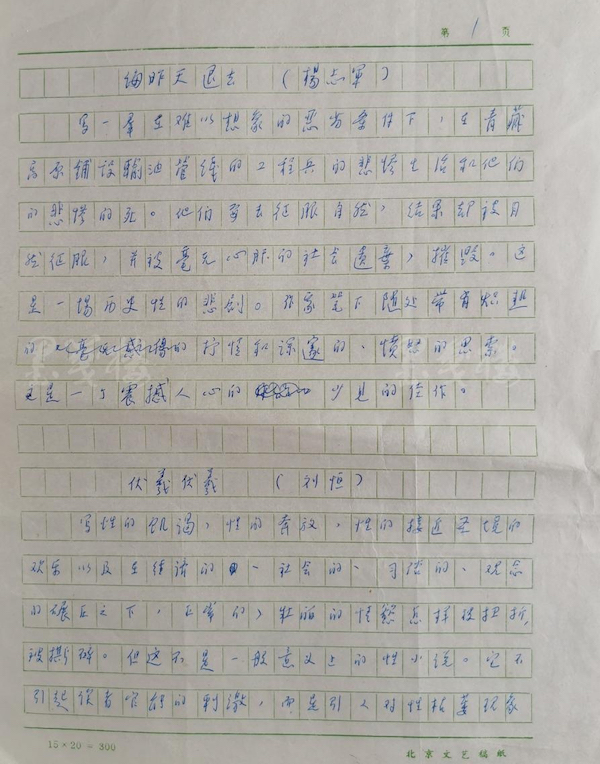 第 1 页
海昨天退去 （杨志军）
写一群在难以想象的恶劣条件下，在青藏
高原铺设输油管线的工程兵的悲惨生活和他们
的悲惨的死。他们要去征服自然，结果却被自
然征服，并被毫无心肝的社会遗弃，摧毁。这
是一场历史性的悲剧。作家笔下随处带有炽热
的 的抒情和深邃的、愤怒的思索。
这是一个震撼人心的 少见的佳作。
伏羲伏羲 （刘恒）
写性的饥渴，性的奔放，性的接近圣境的
欢乐以及在经济的、社会的、习俗的、观念
的碾压之下，正常的，壮丽的情欲怎样被扭折，
被撕碎。但这不是一般意义上的性小说。它不
引起读者官能的刺激，而是引人对性枯萎现象
15×20=300
北京文艺稿纸